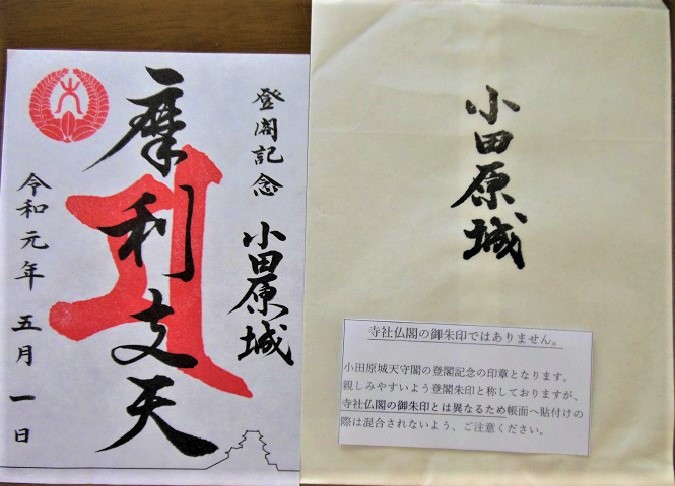 登閣記念 小田原城
摩利支天
令和元年 五月 一日
小田原城
寺社仏閣の御朱印ではありません。
小田原城天守閣の登閣記念の印章となります。
親しみやすいよう登閣朱印と称しておりますが、
寺社仏閣の御朱印とは異なるため帳面へ貼付けの
際は混合されないよう、ご注意ください。